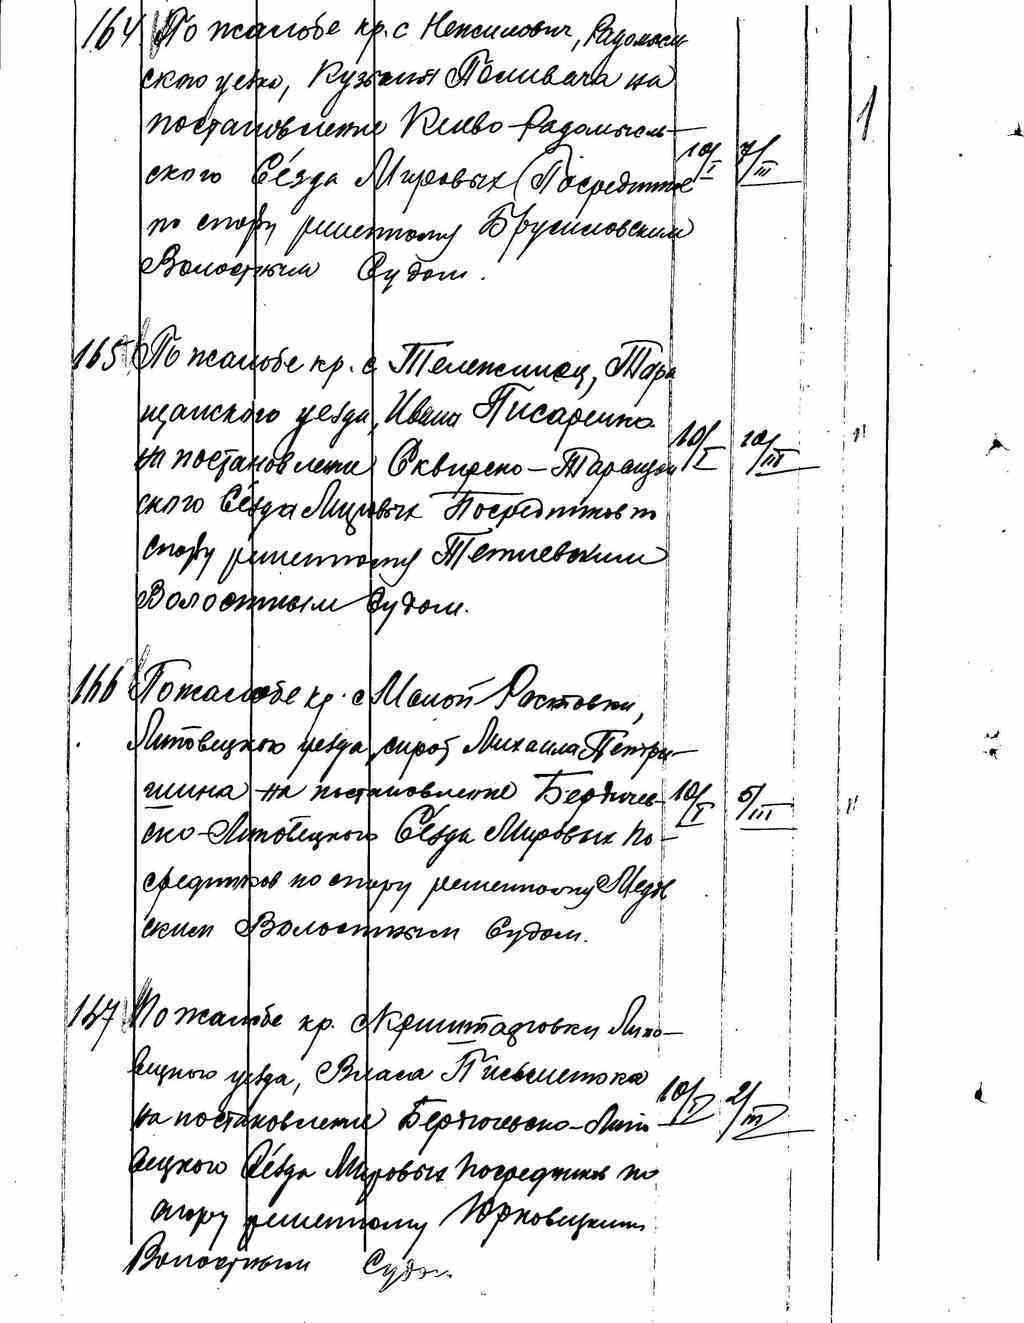 164 По жалобе кр. с Нежилович, Радомысль
ского уезда, Кузьмы Поливача на
постановление Киево-Радомысль-
ского Съезда Мировых Посредников
10/I 7/III 1
по спору решенному Брусиловским
Волостным Судом.
165 По жалобе кр. с Тележинец, Тара
щанского уезда, Ивана Писаренко
на постановление Сквирско-Таращан
10/I 10/III "
ского Съезда Мировых Посредников по
спору решенному Тетиевским
Волостным Судом.
166 По жалобе кр. с Малой Ростовки,
Липовецкого уезда, сирот Михаила Петри-
шина на постановление Бердичев-
10/I 5/III "
ско-Липовецкого Съезда Мировых По-
средников по спору решенному
ским Волостным Судом.
167 По жалобе кр. с Криштаповки Липо-
вецкого уезда, Власа Письменюка
на постановление Бердичевско-Липо
10/I 2/III
вецкого Съезда Мировых Посредников по
спору решенному Юрковецким
Волостным Судом